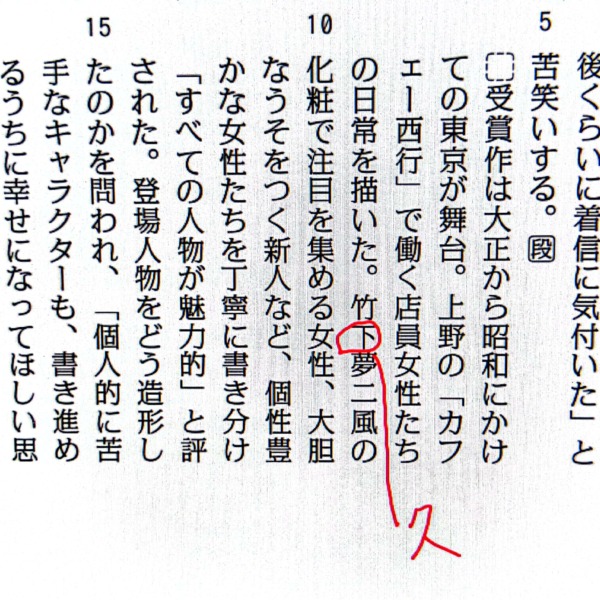 後くらいに着信に気付いた」と
5
苦笑いする。段
受賞作は大正から昭和にかけ
ての東京が舞台。上野の「カフ
ェー西行」で働く店員女性たち
の日常を描いた。竹下夢二風の
久
10
化粧で注目を集める女性、大胆
なうそをつく新人など、個性豊
かな女性たちを丁寧に書き分け
「すべての人物が魅力的」と評
された。登場人物をどう造形し
15
たのかを問われ、「個人的に苦
手なキャラクターも、書き進め
るうちに幸せになってほしい思